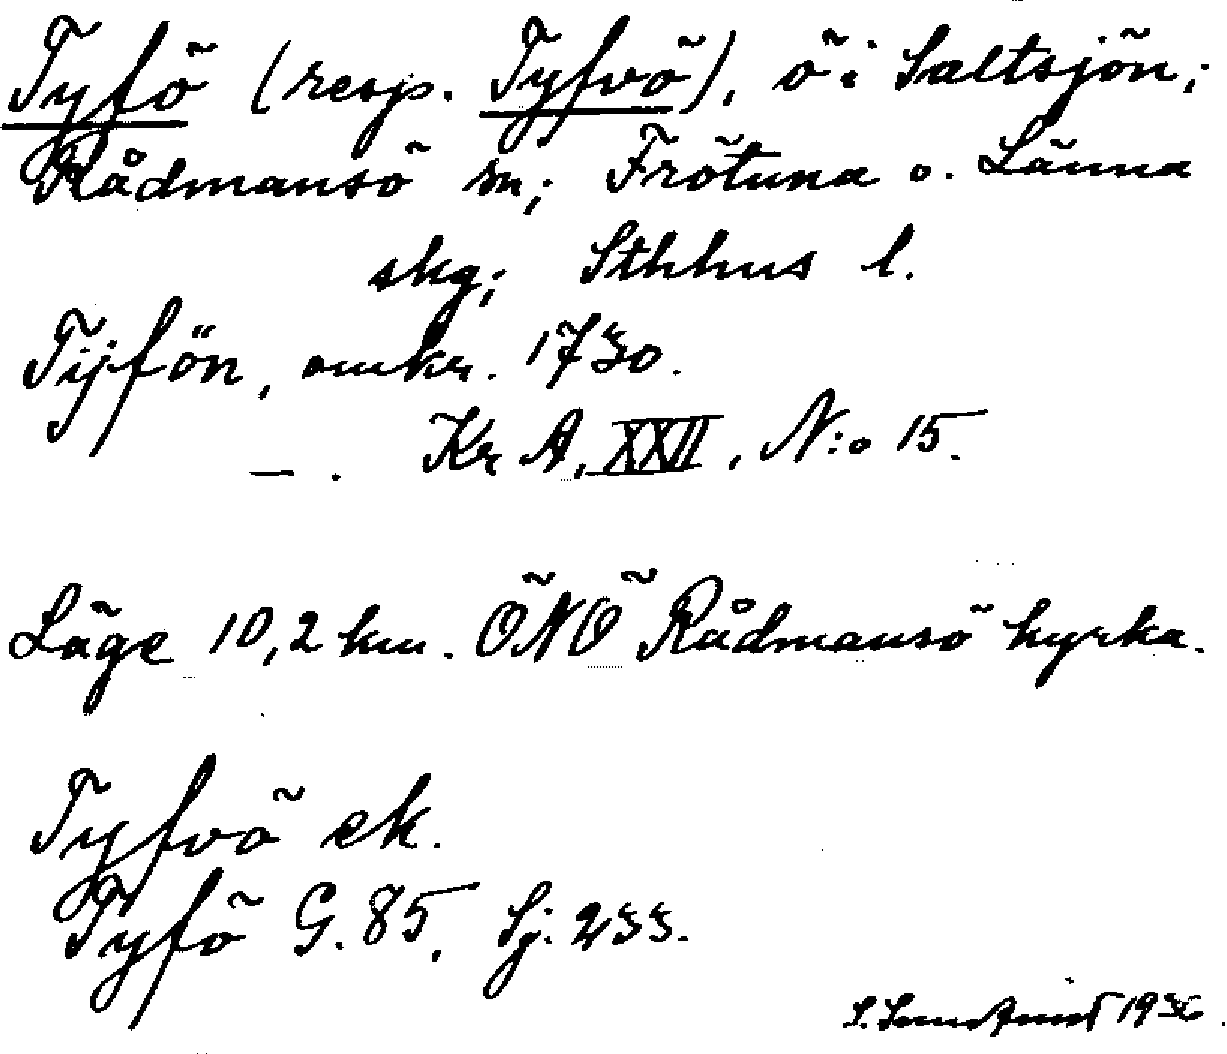 Tyfö (resp. Tyfvö), ö i Saltsjön;
Rådmansö sn; Frötuna o. Länna
skg; Sthhus l.
Tijfön, omkr. 1730.
— . Kr A, XXII, N:o 15.
Läge 10,2 km. ÖNÖ Rådmansö kyrka.
Tyfvö ek.
Tyfö G. 85, Sj. 233.
S. 1936.